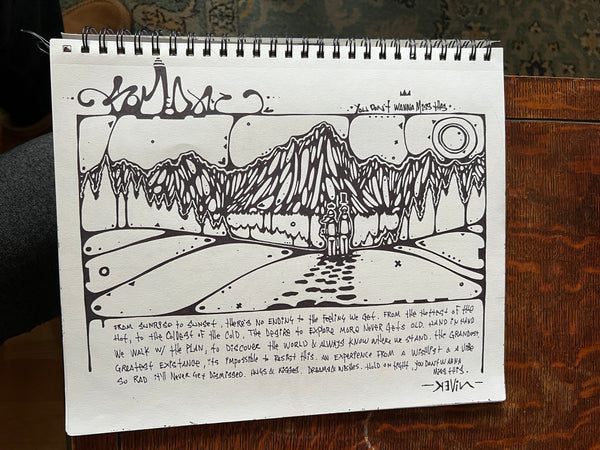 You Don't Wanna Miss This.
From sunrise to sunset, there's no ending to the feeling we get. From the hottest of the
hot, to the coldest of the cold. The desire to explore more never gets old. Hand in hand
we walk w/ the plan, to discover the world & always know where we stand. The grandest,
greatest existance, its impossible to resist this. An experience from a wishlist & a vibe
so rad it'll never get dismissed. Hugs & kisses. Dreams & wishes. Hold on tight, you don't wanna
miss this.